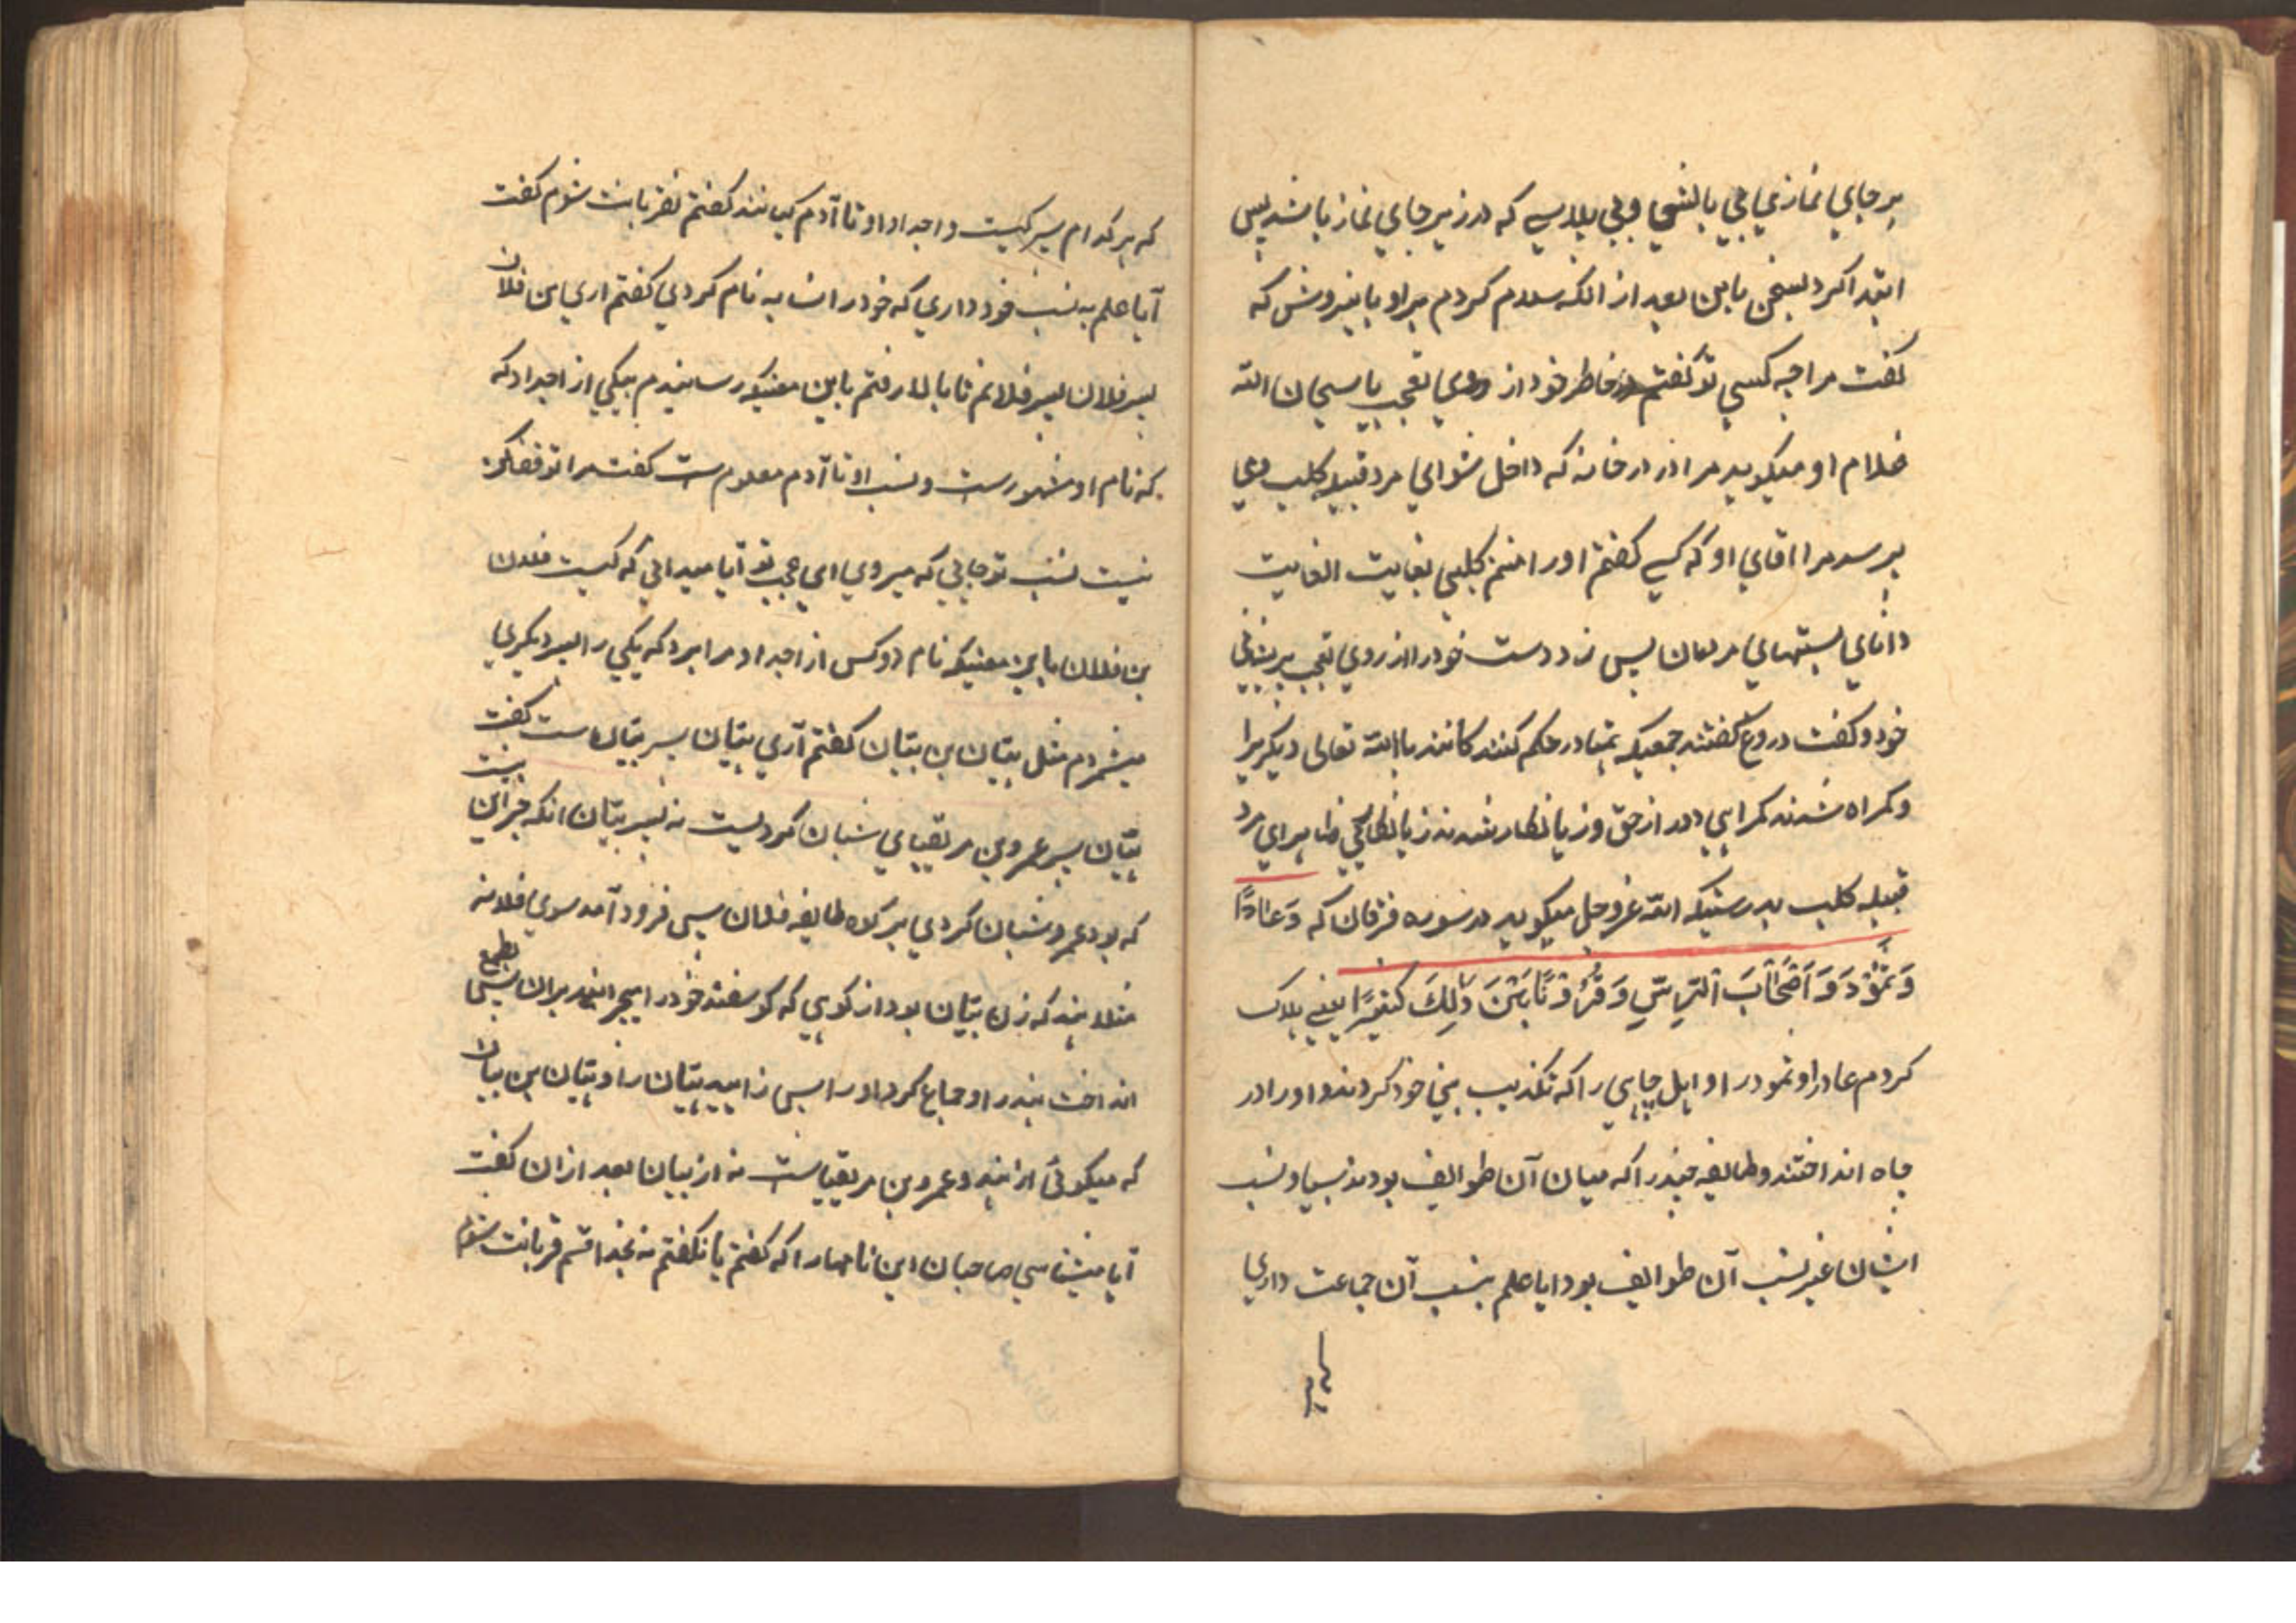 بر جای نمازی بی بالشی و بی پلاسی که در زیر جای نماز باشد پس
ابتدا کرد بسخن باین بعد از انکه سلام کردم بر او باینروش که
گفت مرا چه کسی تو گفتم در خاطر خود از روی تعجب یا سبحان الله
غلام او میگوید مرا در در خانه که داخل شو ای مرد قبیله کلب و می
پرسد مرا اقای او که کسی گفتم او را منم کلبی بغایت الغایت
دانای نسبتهای مردمان پس زد دست خود را از روی تعجب بر پیشانی
خود و گفت دروغ گفتند جمعیکه بتمادر حکم کنند کانند با الله تعالی دیگریرا
و گمراه شدند گمراهی دور از حق و زیانکار شدند زیانکاریی ظاهر ای مرد
قبیله کلب بدرستیکه الله عز و جل میگوید در سوره فرقان که وَعَادًا
وَثَمُودَ وَاَصْحَابَ الرَّسِّ وَقُرُوْنًا بَيْنَ ذَلِكَ كَثِيْرًا یعنی هلاک
کردم عاد را و ثمود را و اهل چاهی را که تکذیب نبی خود کردند و او را در
چاه انداختند و طایفه چند را که میان آن طوایف بودند بسیار و نسب
ایشان غیر نسب آن طوایف بود ایا علم بنسب آن جماعت داری
که هر کدام پسر کیست و اجداد او تا آدم کیانند گفتم نه قربانت شوم گفت
آیا علم به نسب خود داری که خود را نسابه نام کردی گفتم اری من فلان
پسر فلان پسر فلانم تا بالا رفتم باین معنیکه رسانیدم بیکی از اجداد که
که نام او مشهورست و نسب او تا آدم معلوم ست گفت مرا توقف کن
نیست نسب تو جایی که میروی ای عجب تو آیا میدانی که کیست فلان
بن فلان باین معنیکه نام دو کس از اجداد مرا برد که یکی را پسر دیگری
میشمردم مثل بتیان بن بتیان گفتم آری بتیان پسر بتیان ست گفت
بتیان پسر عمرو بن مریقیای شبان کردیست نه پسر بتیان انکه جز این نیست
که بود عمرو شبان کردی بر گله طایفه فلان پس فرود آمد سوی فلانه
مثلا هند که زن بتیان بود از کوهی که گوسفند خود را میچرانید بران پس بطمع
انداخت هند را و جماع کرد او را پس زایید بتیان را و بتیان بن بتیان
که میگوئی از هند و عمرو بن مریقیاست نه از بتیان بعد ازان گفت
آیا میشناسی صاحبان این نامها را که گفتم یا نگفتم نه بخدا قسم قربانت شوم